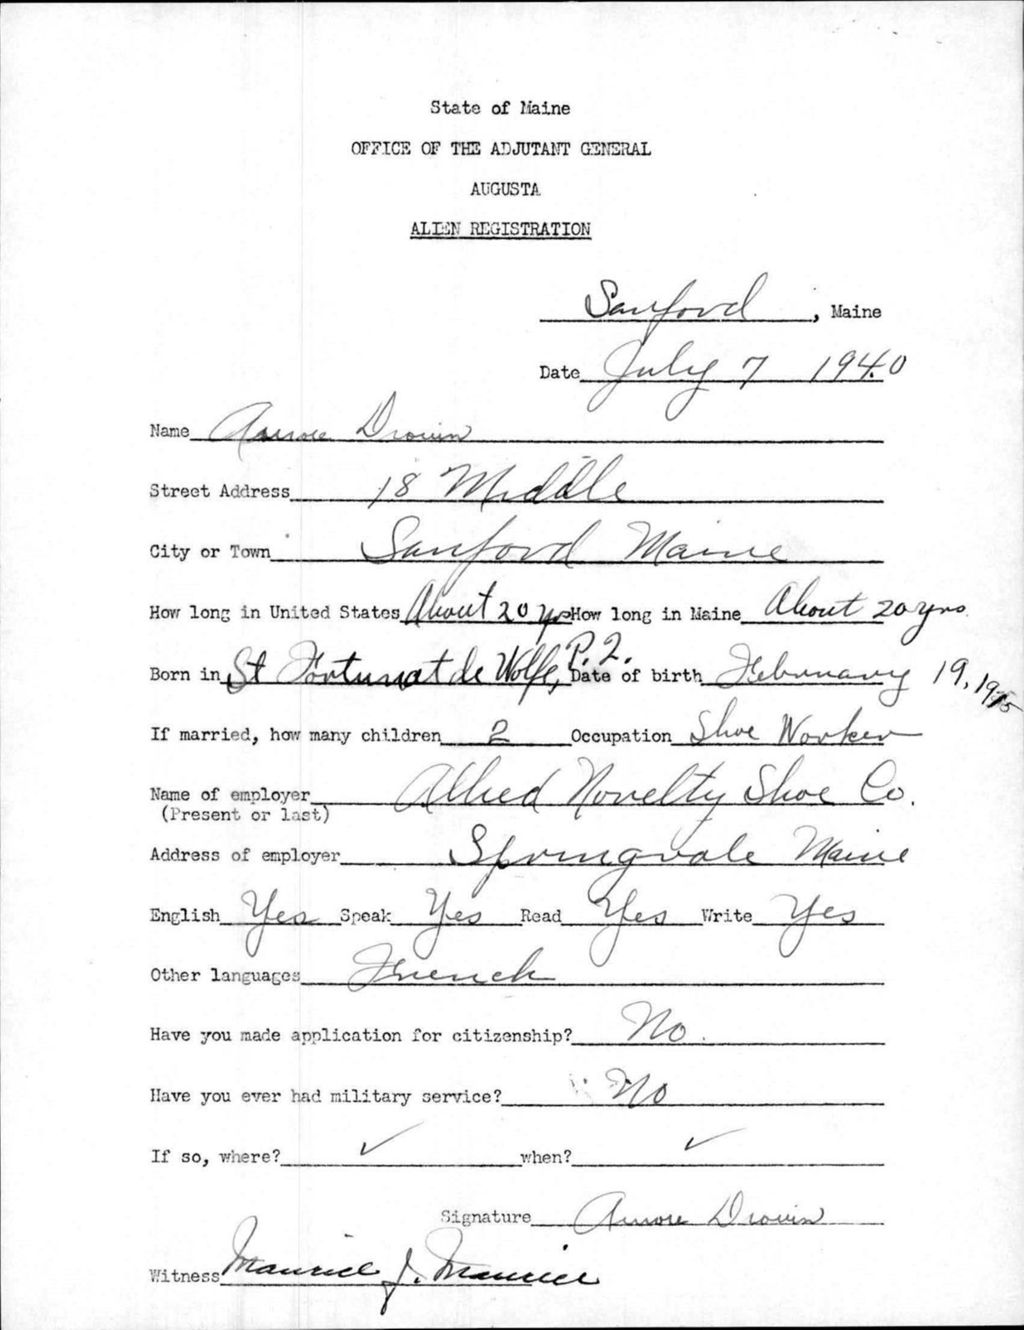 State of Maine
OFFICE OF THE ADJUTANT GENERAL
AUGUSTA
ALIEN REGISTRATION
Sanford, Maine
Date July 7 1940
Name Aurore Drouin
Street Address 18 Middle
City or Town Sanford Maine
How long in United States About 20 yrs How long in Maine About 20 yrs
Born in St Fortunat de Wolfe, P.Q. Date of birth February 19, 1915
If married, how many children 2 Occupation Shoe Worker
Name of employer Allied Novelty Shoe Co.
(Present or last)
Address of employer Springvale Maine
English Yes Speak Yes Read Yes Write Yes
Other languages French
Have you made application for citizenship? No.
Have you ever had military service? No
If so, where? ✓ when? ✓
Signature Aurore Drouin
Witness Maurice J. Maurice